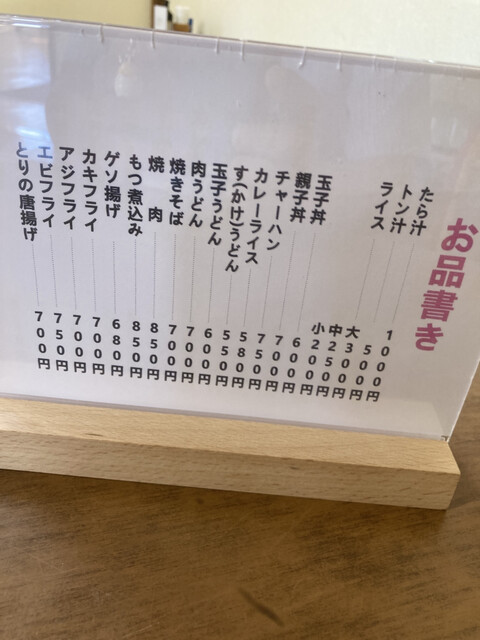 お品書き
たら汁 1000円
トン汁 500円
ライス 大300円
中250円
小200円
玉子丼 600円
親子丼 700円
チャーハン 750円
カレーライス 580円
す(かけ)うどん 550円
玉子うどん 600円
肉うどん 700円
焼きそば 700円
焼 肉 850円
もつ煮込み 850円
ゲソ揚げ 680円
カキフライ 700円
アジフライ 700円
エビフライ 750円
とりの唐揚げ 700円